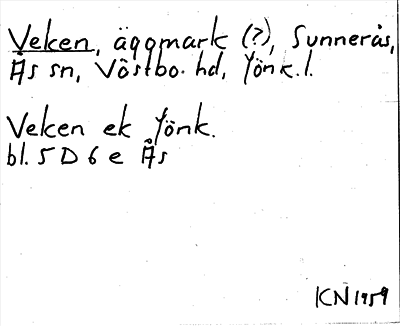 Veken, ägomark (?), Sunnerås,
Ås sn, Västbo hd, Jönk.l.
Veken ek Jönk.
bl. 5 D 6 e Ås
KN 1959